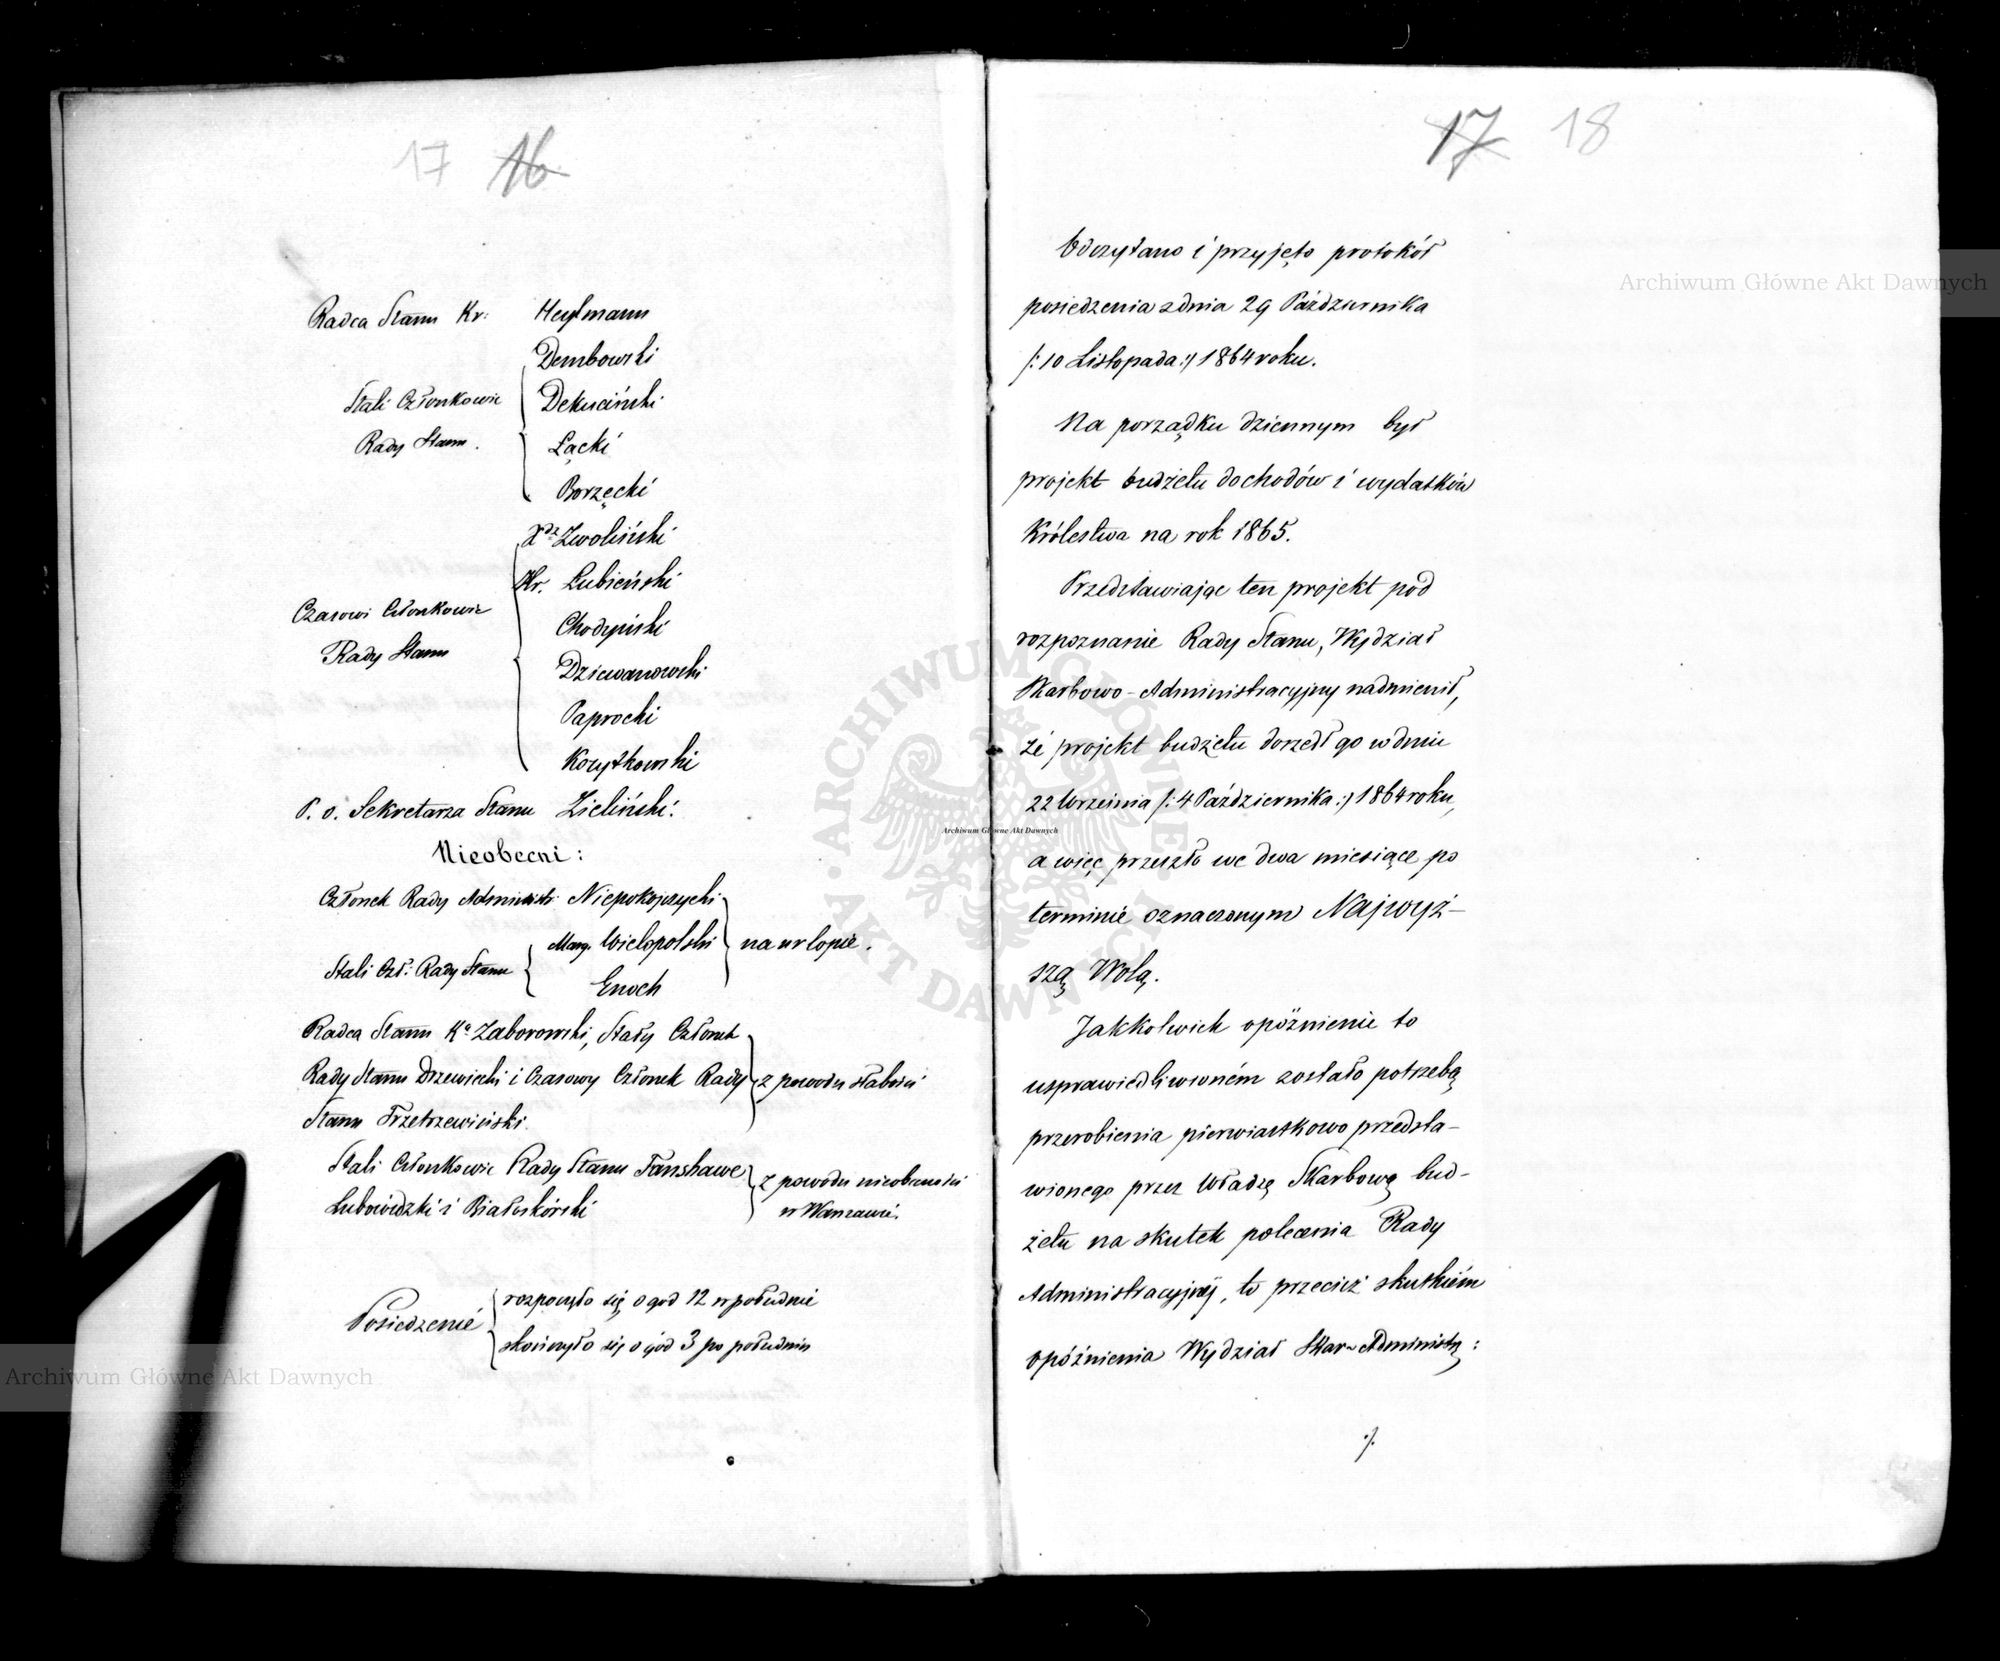 17 16
Radca Stanu Kr: Heylmann
Dembowski
Stali Członkowie
Rady Stanu.
Dekuciński
Łącki
Borzęcki
Xdz Zwoliński
Hr. Łubieński
Czasowi Członkowie
Rady Stanu
Chodyński
Dziewanowski
Paprocki
Korytkowski
P. o. Sekretarza Stanu Zieliński.
Nieobecni:
Członek Rady Administr: Niepokojczycki
Stali Czł: Rady Stanu
Marg. Wielopolski
Enoch
na urlopie.
Radca Stanu Ka Zaborowski, Stały Członek
Rady Stanu Drzewiecki i Czasowy Członek Rady
Stanu Trzetrzewiński.
z powodu słabości
Stali Członkowie Rady Stanu Fanshawe
Lubowidzki i Białoskórski
z powodu nieobecności
w Warszawie.
Posiedzenie
rozpoczęło się o god 12 w południe
skończyło się o god 3 po południu
17 18
Odczytano i przyjęto protokół
posiedzenia z dnia 29 Października
/:10 Listopada:/ 1864 roku.
Na porządku dziennym był
projekt budżetu dochodów i wydatków
Królestwa na rok 1865.
Przedstawiając ten projekt pod
rozpoznanie Rady Stanu, Wydział
Skarbowo-Administracyjny nadmienił,
że projekt budżetu doszedł go w dniu
22 Września /:4 Października:/ 1864 roku,
a więc przeszło we dwa miesiące po
terminie oznaczonym Najwyż-
szą Wolą.
Jakkolwiek opóźnienie to
usprawiedliwioném zostało potrzebą
przerobienia pierwiastkowo przedsta-
wionego przez Władzę Skarbową bud-
żetu na skutek polecenia Rady
Administracyjnéj, to przecież skutkiém
opóźnienia Wydział Skar-Administr:
./.
Archiwum Główne Akt Dawnych
Archiwum Główne Akt Dawnych
Archiwum Główne Akt Dawnych
ARCHIWUM GŁÓWNE AKT DAWNYCH